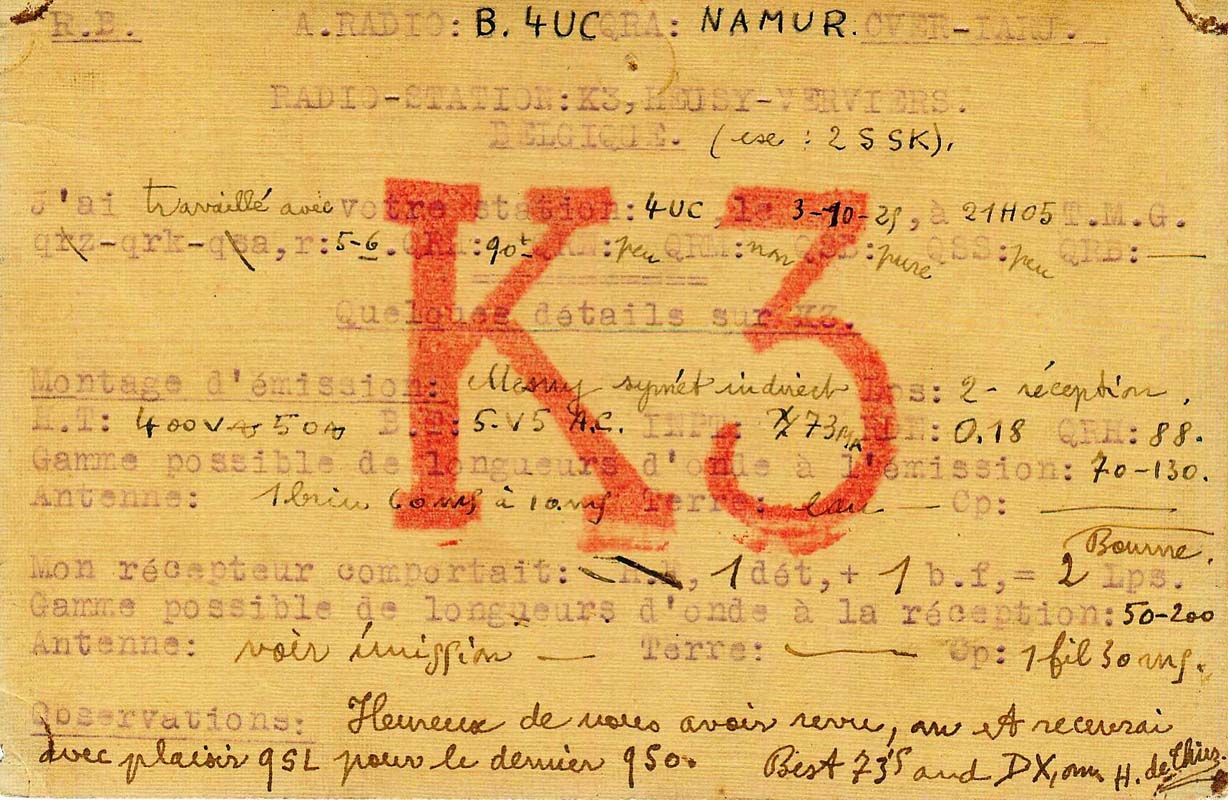 R.B. A.RADIO: B. 4UC QRA: NAMUR.
RADIO-STATION:K3, HEUSY-VERVIERS.
BELGIQUE. (exe : 2 S SK).
K3
J'ai travaillé avec votre station: 4UC, le 3-10-25, à 21H05 T.M.G.
qrz-qrk-qsa, r:5-6. QRH:90t QRN:peu QRM:non QSB:pure QSS:peu QRB:—
Quelques détails sur K3.
Montage d'émission: Mesny symét indirect Lps: 2 - réception.
H.T: 400 v 50 B.T: 5.V5 A.C. INPT: 73MA RDE: 0.18 QRH: 88.
Gamme possible de longueurs d'onde à l'émission: 70-130.
Antenne: 1 brin 60 ms à 10 ms Terre: eau — Cp: —
Bourne.
Mon récepteur comportait: H.F, 1 dét, + 1 b.f, = 2 Lps.
Gamme possible de longueurs d'onde à la réception: 50-200
Antenne: voir émission — Terre: — Cp: 1 fil 30 ms.
Observations: Heureux de vous avoir revu, om et recevrai
avec plaisir QSL pour le dernier QSO. Best 73's and DX, om H. de